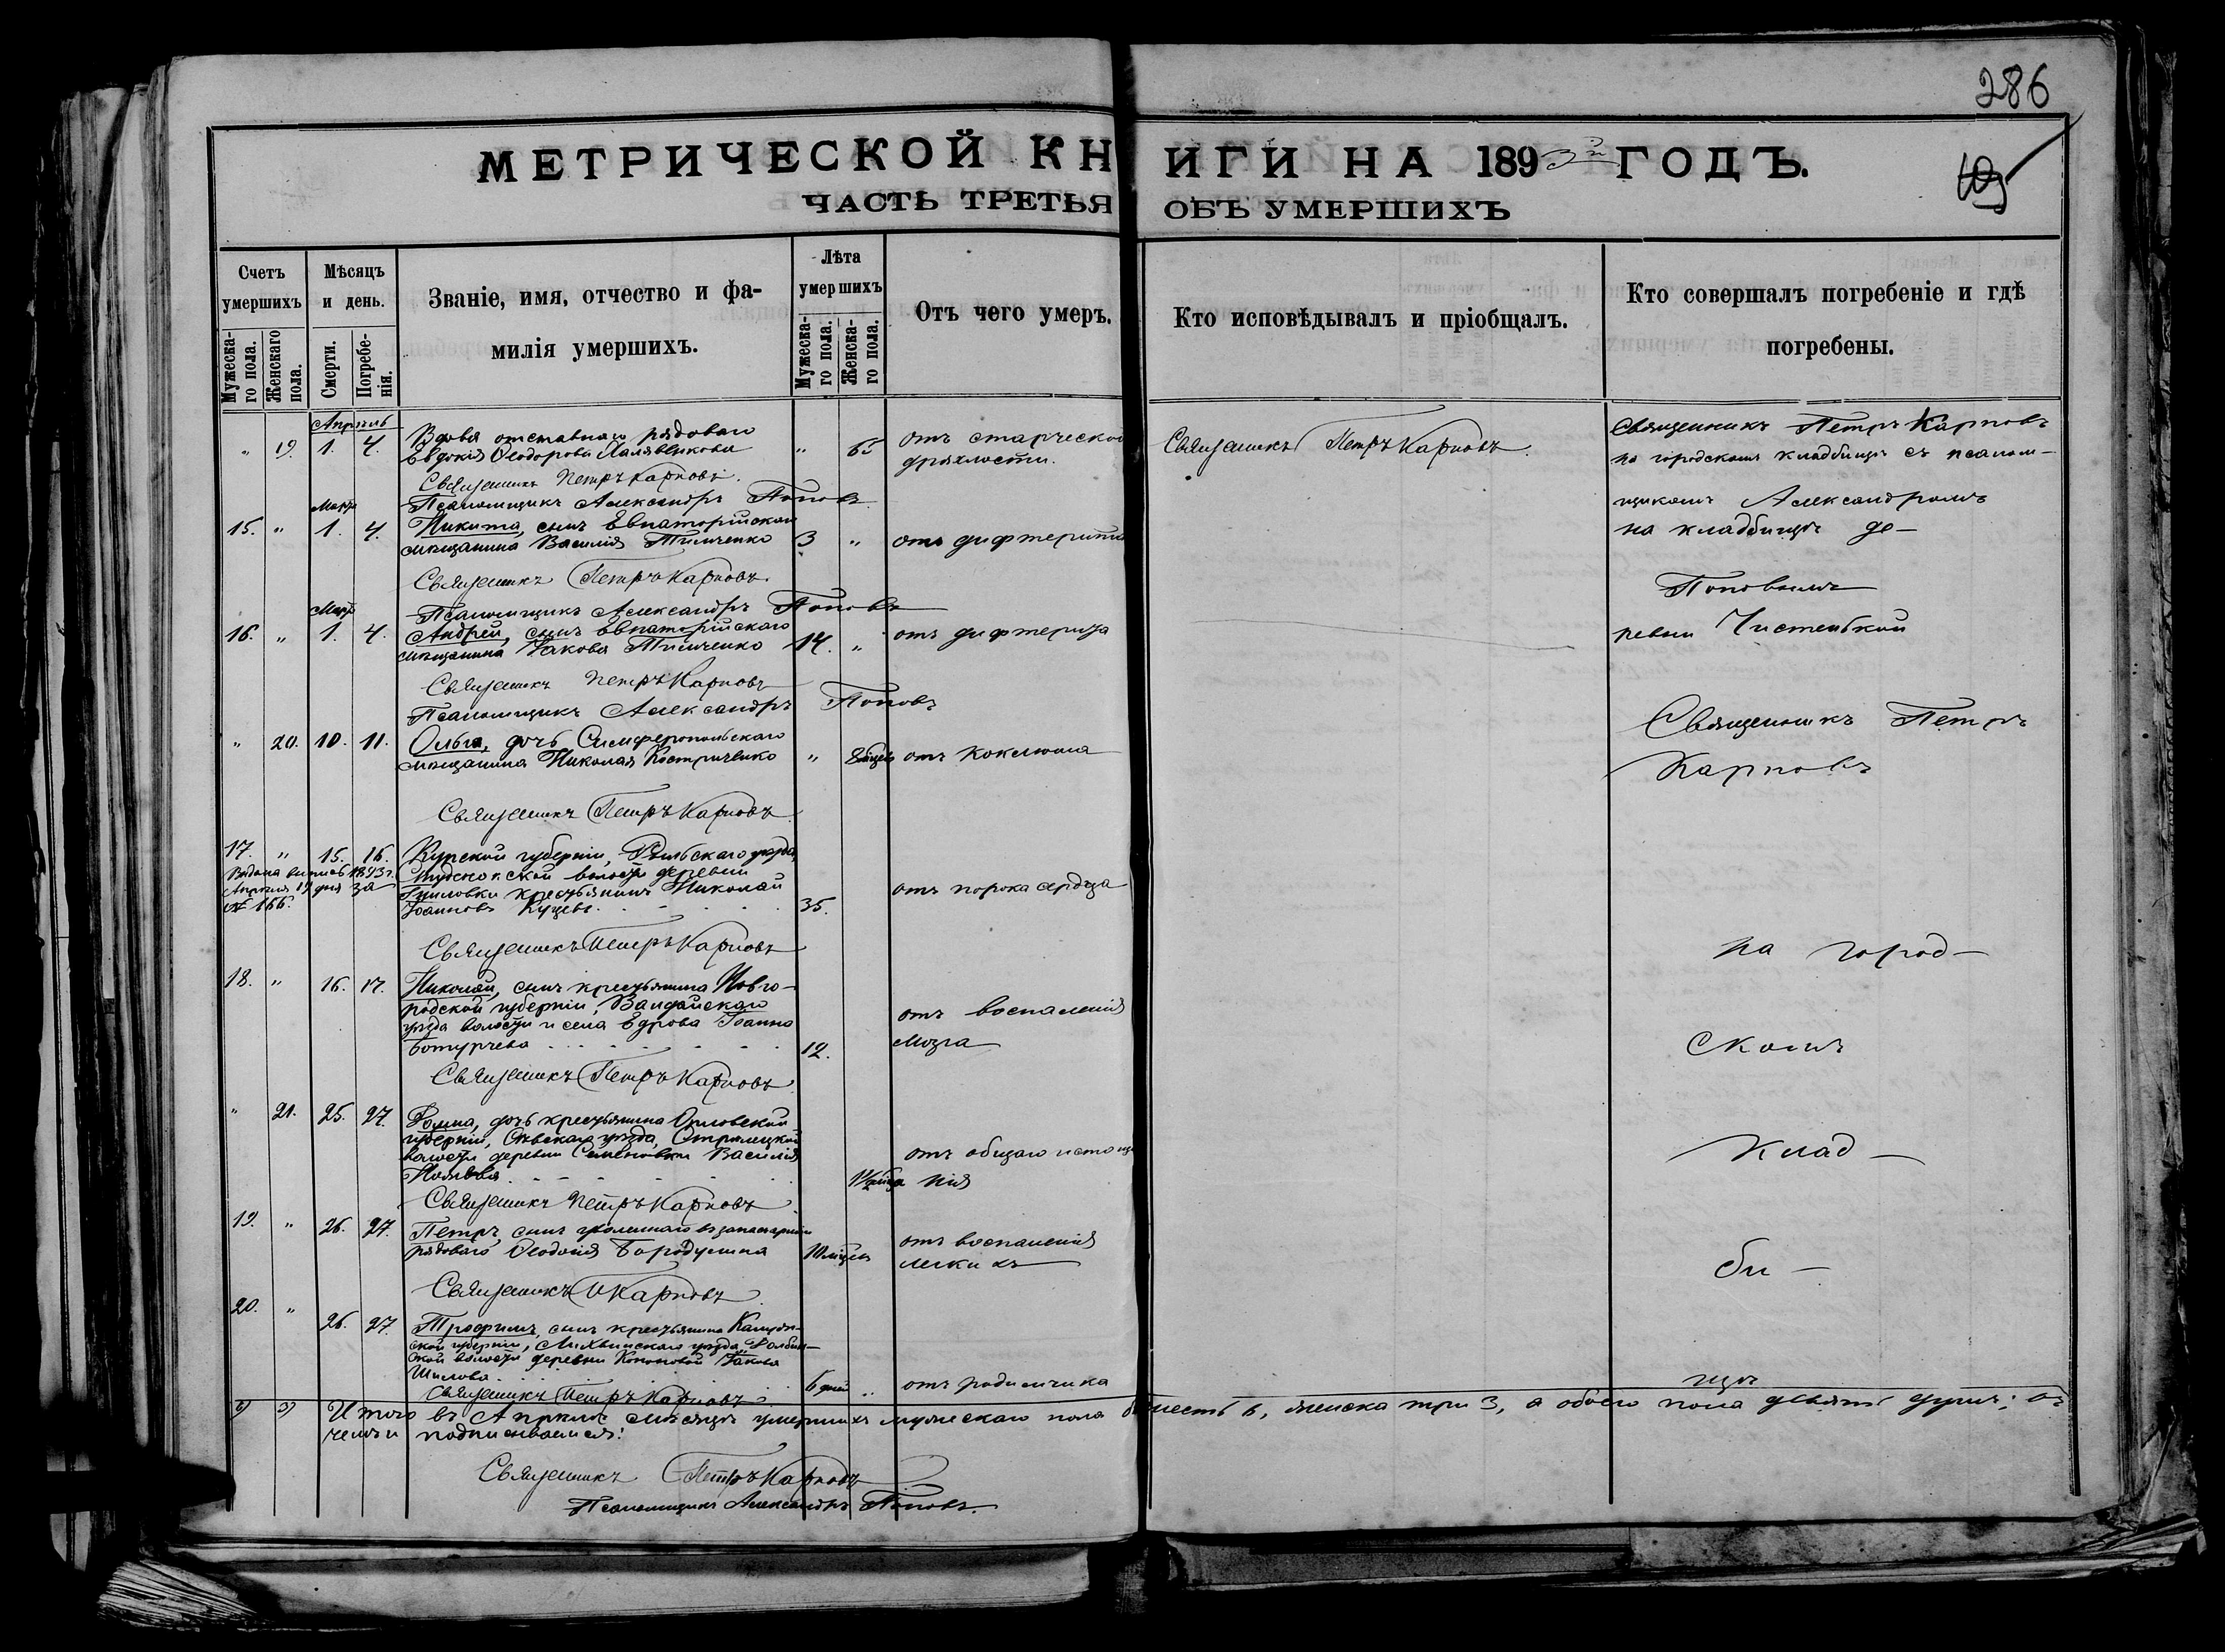 286
МЕТРИЧЕСКОЙ КНИГИ НА 1893й ГОДЪ.
ЧАСТЬ ТРЕТЬЯ ОБЪ УМЕРШИХЪ
Счетъ умершихъ
Мужеска-го пола.
Женскаго пола.
Мѣсяцъ и день.
Смерти.
Погребе-нія.
Званіе, имя, отчество и фа-
милія умершихъ.
Лѣта умершихъ
Мужеска-го пола.
Женска-го пола.
Отъ чего умеръ.
Кто исповѣдывалъ и пріобщалъ.
Кто совершалъ погребеніе и гдѣ
погребены.
Апрѣль
" 19. 1. 4. Вдова отставнаго рядоваго " 65 отъ старческой Священникъ Петръ Карповъ. Священникъ Петръ Карповъ
Евдокія Ѳеодорова дряхлости. на городскомъ кладбищѣ съ псалом-
Священникъ Петръ Карповъ.
Псаломщикъ Александръ Поповъ щикомъ Александромъ
Марта
15. " 1. 4. Никита, сынъ Евпаторійскаго на кладбищѣ де-
мѣщанина Василія Тимченко 3 " отъ дифтерита
Священникъ Петръ Карповъ. Поповымъ
Марта
Псаломщикъ Александръ Поповъ
16. " 1. 4. Андрей, сынъ Евпаторійскаго отъ дифтерита ревни Чистенькой
мѣщанина Іакова Тимченко 14. "
Священникъ Петръ Карповъ
Псаломщикъ Александръ Поповъ Священникъ Петръ
" 20. 10. 11. Ольга, дочь Симферопольскаго
мѣщанина Николая Костриченко " 8 мѣсц. отъ коклюша Карповъ
Священникъ Петръ Карповъ
17. " 15. 16. Курской губерніи, Рыльскаго уѣзда,
Выдана выпись 1893 г. волости деревни
Апрѣля 19 дня за крестьянинъ Николай отъ порока сердца
№ 166. Іоанновъ Куцевъ 35.
Священникъ Петръ Карповъ на город-
18. " 16. 17. Николай, сынъ крестьянина Новго-
родской губерніи, Валдайскаго отъ воспаленія
уѣзда волости и села Едрова Іоанна
Ботурчева 12. мозга скомъ
Священникъ Петръ Карповъ
" 21. 25. 27. дочь крестьянина Орловской
губерніи, Сѣвскаго уѣзда, Стрѣлецкой клад-
волости деревни Семеновки Василія отъ общаго истоще-
1½ мѣсца нія
Священникъ Петръ Карповъ
19. " 26. 27. Петръ, сынъ уволеннаго въ запасъ арміи
рядоваго Ѳеодосія Бородулина 10 мѣсцъ отъ воспаленія легкихъ
Священникъ П Карповъ би-
20. " 26. 27. Трофимъ, сынъ крестьянина Калуж-
ской губерніи, Лихвинскаго уѣзда,
ской волости деревни Кононовой Іакова
Шилова 6 дней " отъ родимчика щѣ
Священникъ Петръ Карповъ
Итого въ Апрѣлѣ мѣсяцѣ умершихъ мужескаго пола шесть 6, женска три 3, а обоего пола девять душъ; въ
чемъ и подписываемся:
Священникъ Петръ Карповъ
Псаломщикъ Александръ Поповъ.